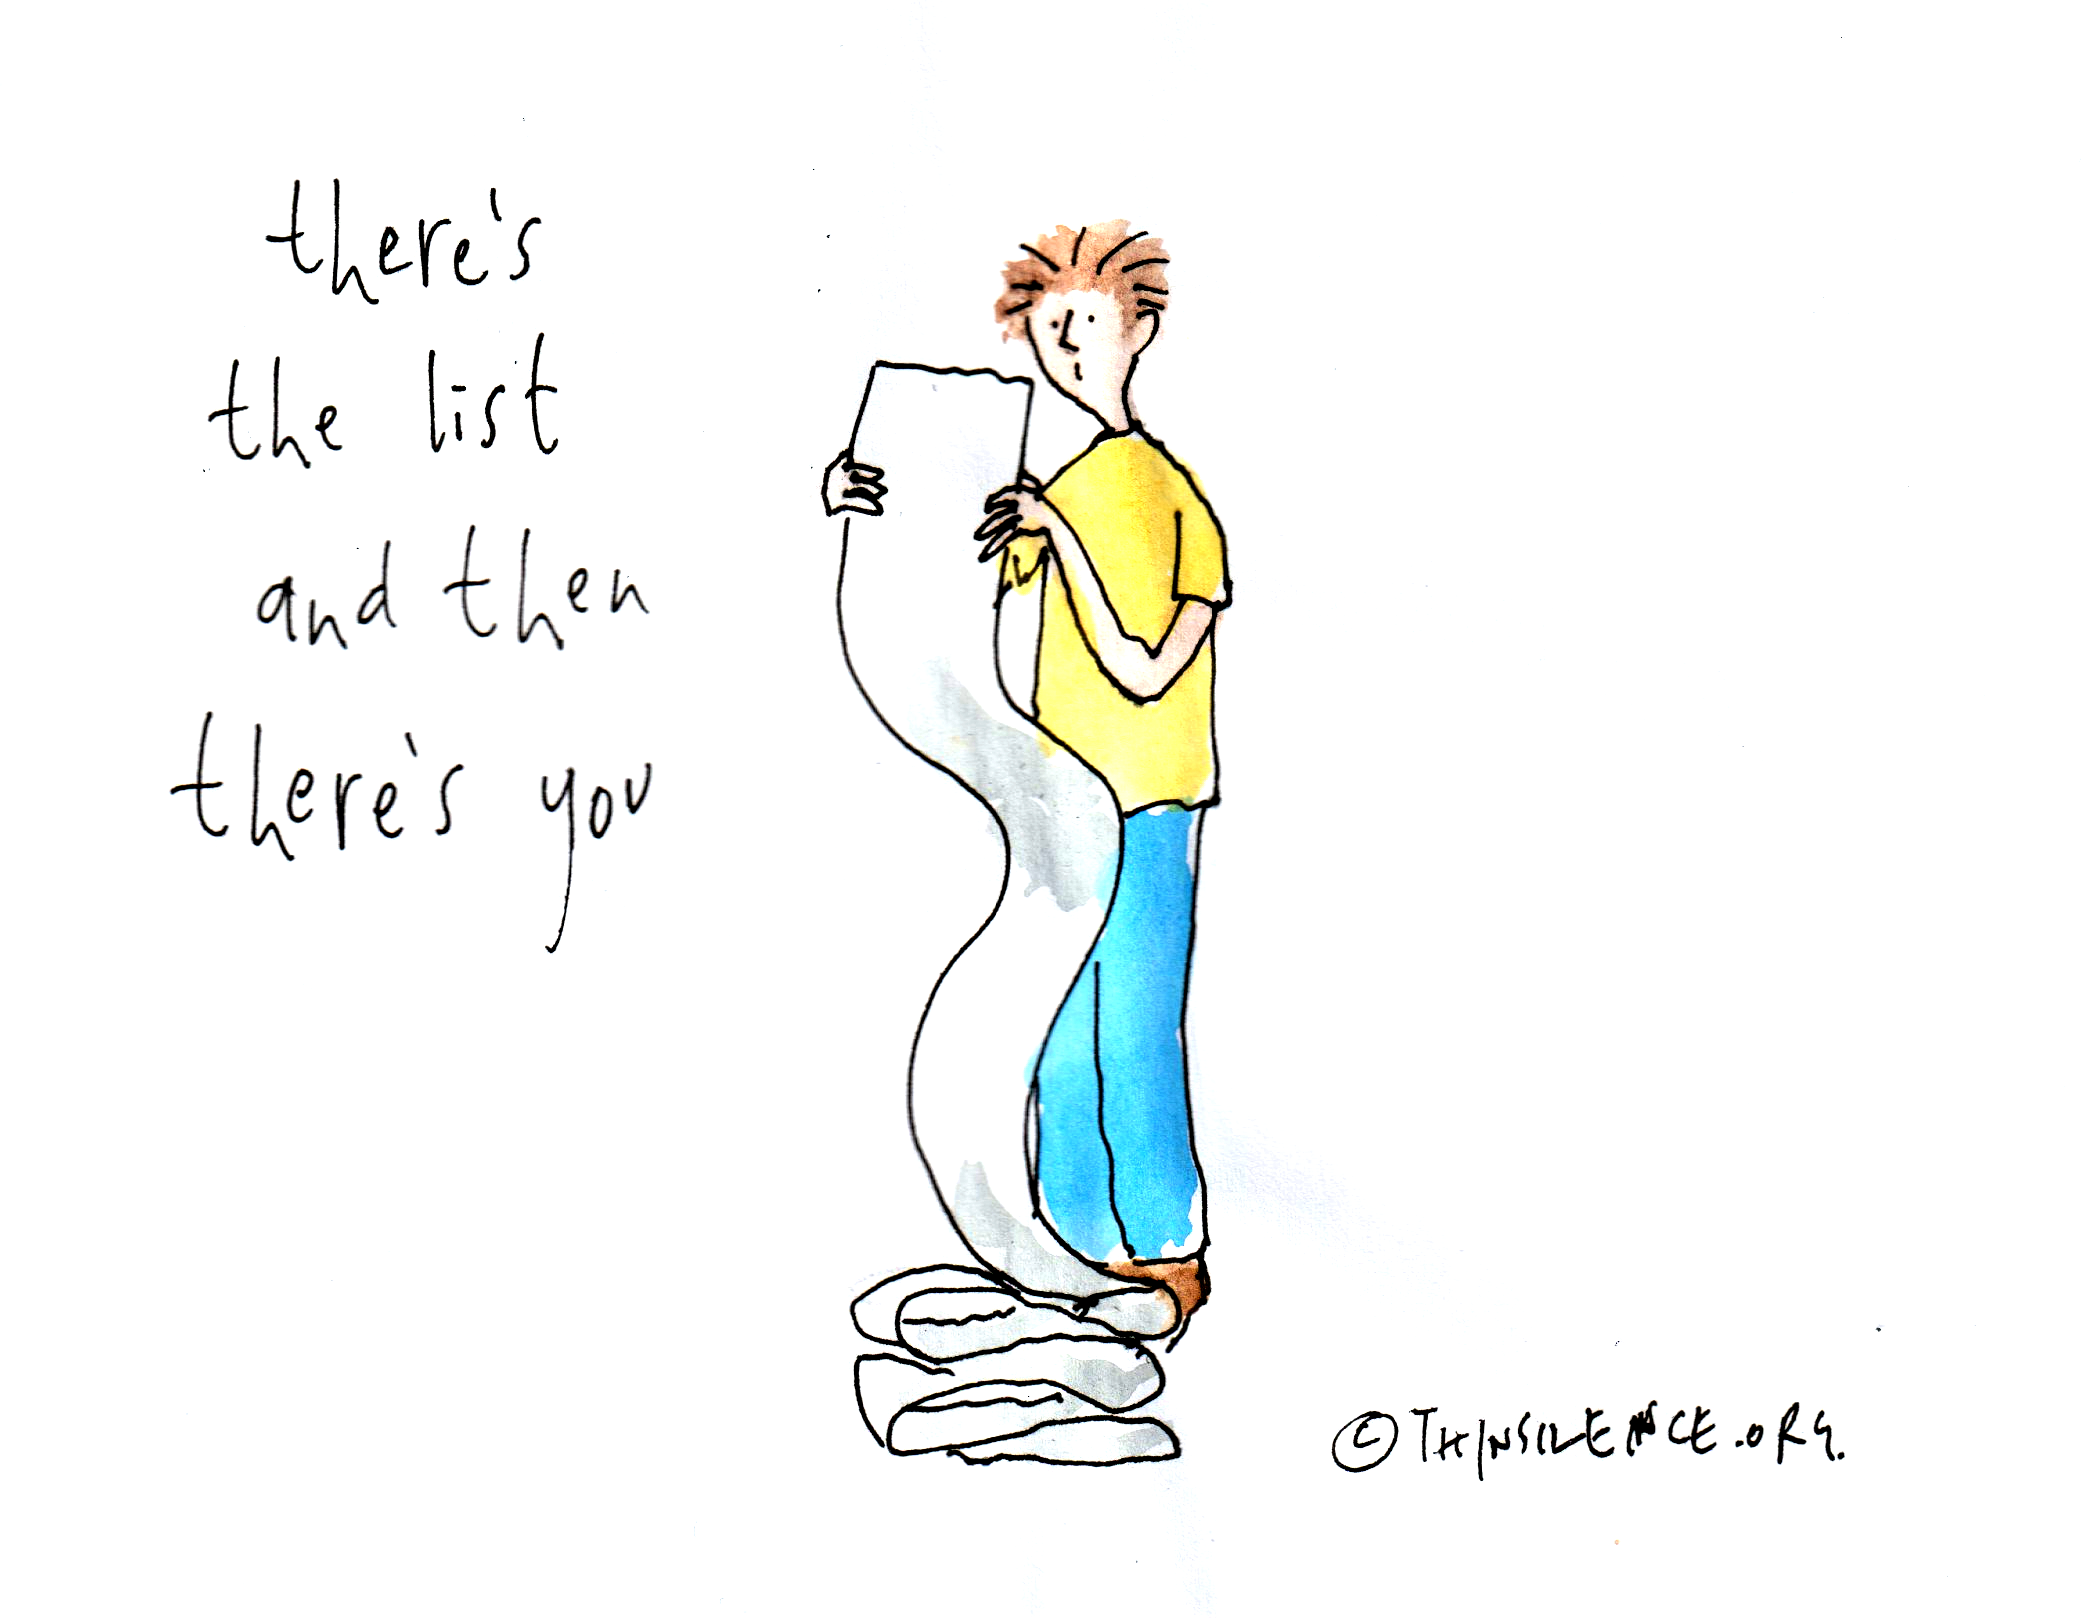 there's
the list
and then
there's you
© THINSILENCE.ORG.